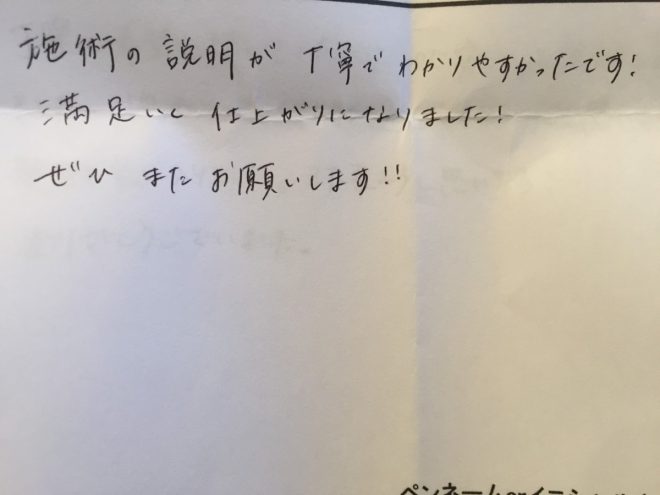 施術の説明が 丁寧で わかりやすかったです!
満足いく 仕上がりになりました!
ぜひ またお願いします!!
ペンネームorイニシ